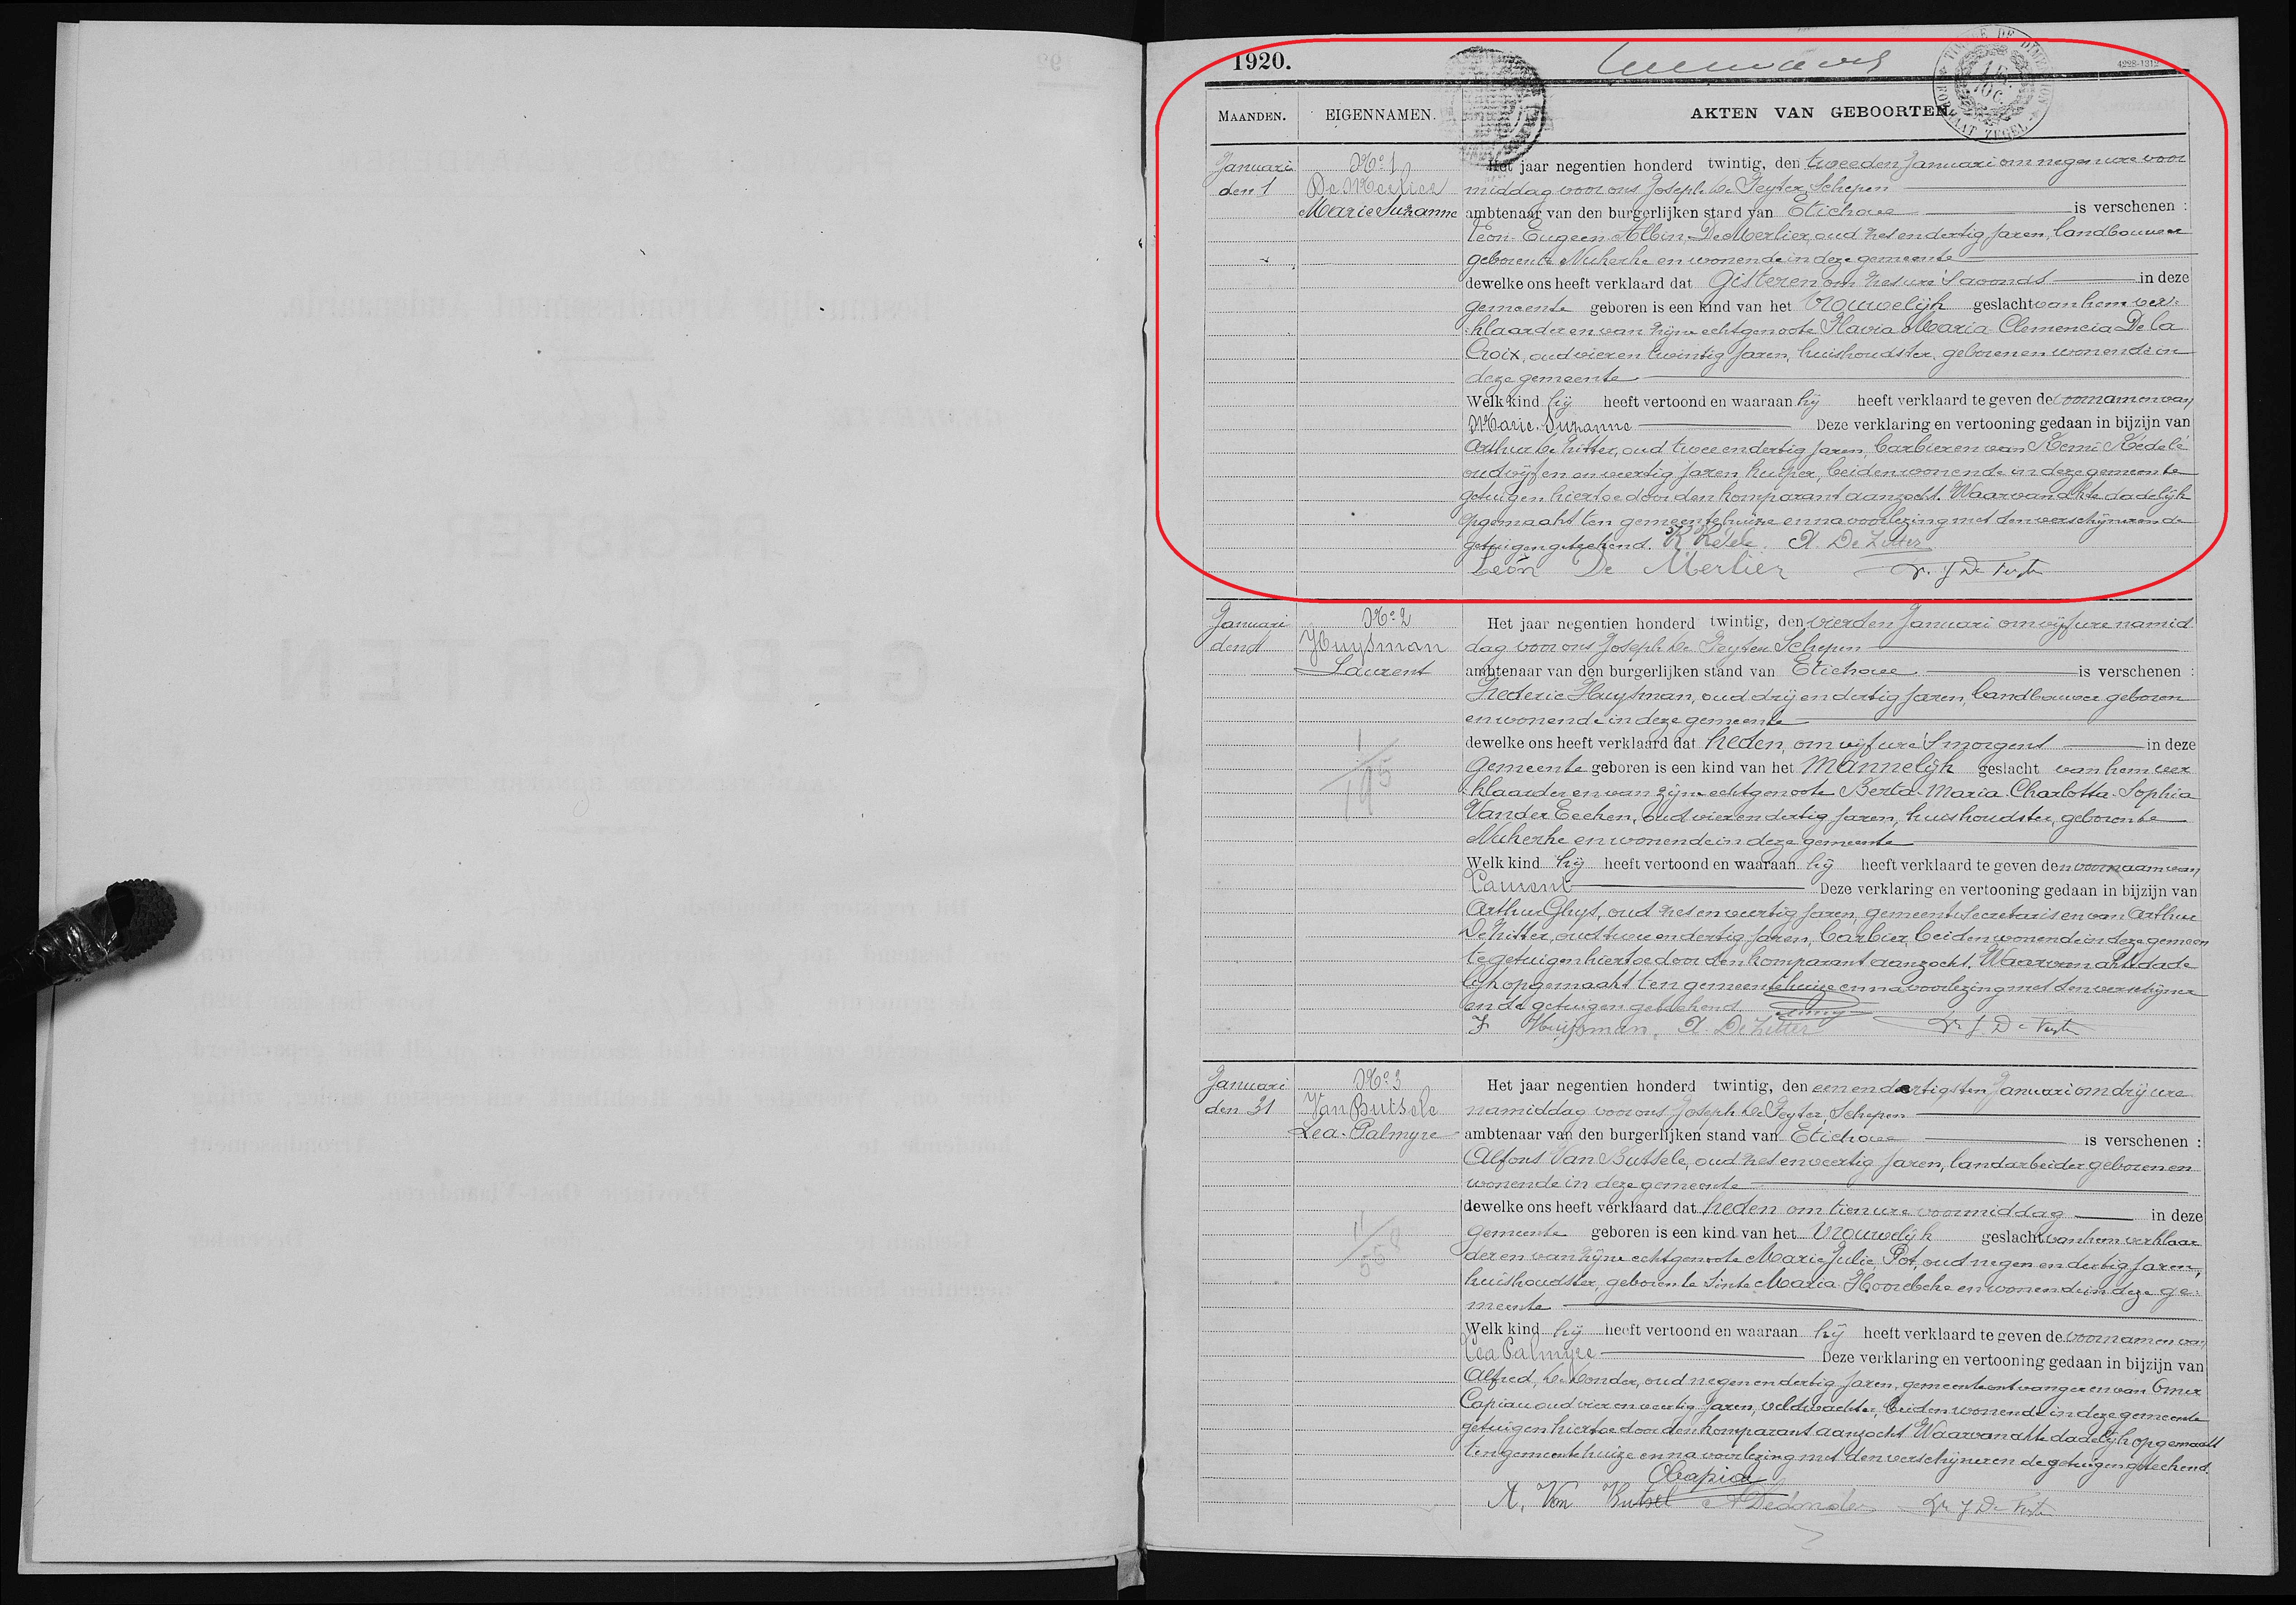 1920.
4228-1312
MAANDEN. EIGENNAMEN. AKTEN VAN GEBOORTEN.
Januari den 1
No. 1
De Merlier
Marie Suzanne
Het jaar negentien honderd twintig, den tweeden Januari om negen ure voor
middag voor ons Joseph De Feyter, Schepen
ambtenaar van den burgerlijken stand van Etichove is verschenen :
Leon Eugeen Albin De Merlier, oud zes en dertig jaren, landbouwer
geboren te Nukerke en wonende in deze gemeente
dewelke ons heeft verklaard dat gisteren om zes ure 's avonds in deze
gemeente geboren is een kind van het vrouwelijk geslacht van hem ver-
klaarder en van zijne echtgenoote Flavia Maria Clemencia De la
Croix, oud vier en twintig jaren, huishoudster, geboren en wonende in
deze gemeente
Welk kind hij heeft vertoond en waaraan hij heeft verklaard te geven de voornamen van
Marie Suzanne Deze verklaring en vertooning gedaan in bijzijn van
Arthur De Zitter, oud twee en dertig jaren, barbier en van Remi Redelé
oud vijf en veertig jaren, kuiper, beiden wonende in deze gemeente
getuigen hiertoe door den komparant aanzocht. Waarvan akte dadelijk
opgemaakt ten gemeentehuize en na voorlezing met den verschijner en de
getuigen geteekend. R Redelé A. De Zitter
Leon De Merlier J De Feyter
Januari den 4
No. 2
Huysman
Laurent
Het jaar negentien honderd twintig, den vierden Januari om vijf ure namid
dag voor ons Joseph De Feyter Schepen
ambtenaar van den burgerlijken stand van Etichove is verschenen :
Frederic Huysman, oud drij en dertig jaren, landbouwer geboren
en wonende in deze gemeente
dewelke ons heeft verklaard dat heden, om vijf ure 's morgens in deze
gemeente geboren is een kind van het mannelijk geslacht van hem ver
klaarder en van zijne echtgenoote Berta Maria Charlotta Sophia
Vander Eecken, oud vier en dertig jaren, huishoudster, geboren te
Nukerke en wonende in deze gemeente
Welk kind hij heeft vertoond en waaraan hij heeft verklaard te geven den voornaam van
Laurent Deze verklaring en vertooning gedaan in bijzijn van
Arthur Ghys, oud zes en veertig jaren, gemeentesecretaris en van Arthur
De Zitter, oud twee en dertig jaren, barbier, beiden wonende in deze gemeen
te getuigen hiertoe door den komparant aanzocht. Waarvan akte dade
lijk opgemaakt ten gemeentehuize en na voorlezing met den verschijner
en de getuigen geteekend
F Huijsman, A. De Zitter J. De Feyter
Januari den 31
No. 3
Van Butsele
Lea Palmyre
Het jaar negentien honderd twintig, den een en dertigsten Januari om drij ure
namiddag voor ons Joseph De Feyter, Schepen
ambtenaar van den burgerlijken stand van Etichove is verschenen :
Alfons Van Butsele, oud zes en veertig jaren, landarbeider geboren en
wonende in deze gemeente
dewelke ons heeft verklaard dat heden om tien ure voormiddag in deze
gemeente geboren is een kind van het vrouwelijk geslacht van hem verklaar
der en van zijne echtgenoote Marie Julie Pot, oud negen en dertig jaren,
huishoudster, geboren te Sinte Maria Hoorebeke en wonende in deze ge-
meente
Welk kind hij heeft vertoond en waaraan hij heeft verklaard te geven de voornamen van
Lea Palmyre Deze verklaring en vertooning gedaan in bijzijn van
Alfred, De Donder, oud negen en dertig jaren, gemeenteontvanger en van Omer
Capiau oud vier en veertig jaren, veldwachter, beiden wonende in deze gemeente
getuigen hiertoe door den komparant aanzocht. Waarvan akte dadelijk opgemaakt
ten gemeentehuize en na voorlezing met den verschijner en de getuigen geteekend.
O Capiau
A. Van Butsel A Dedonder J De Feyter